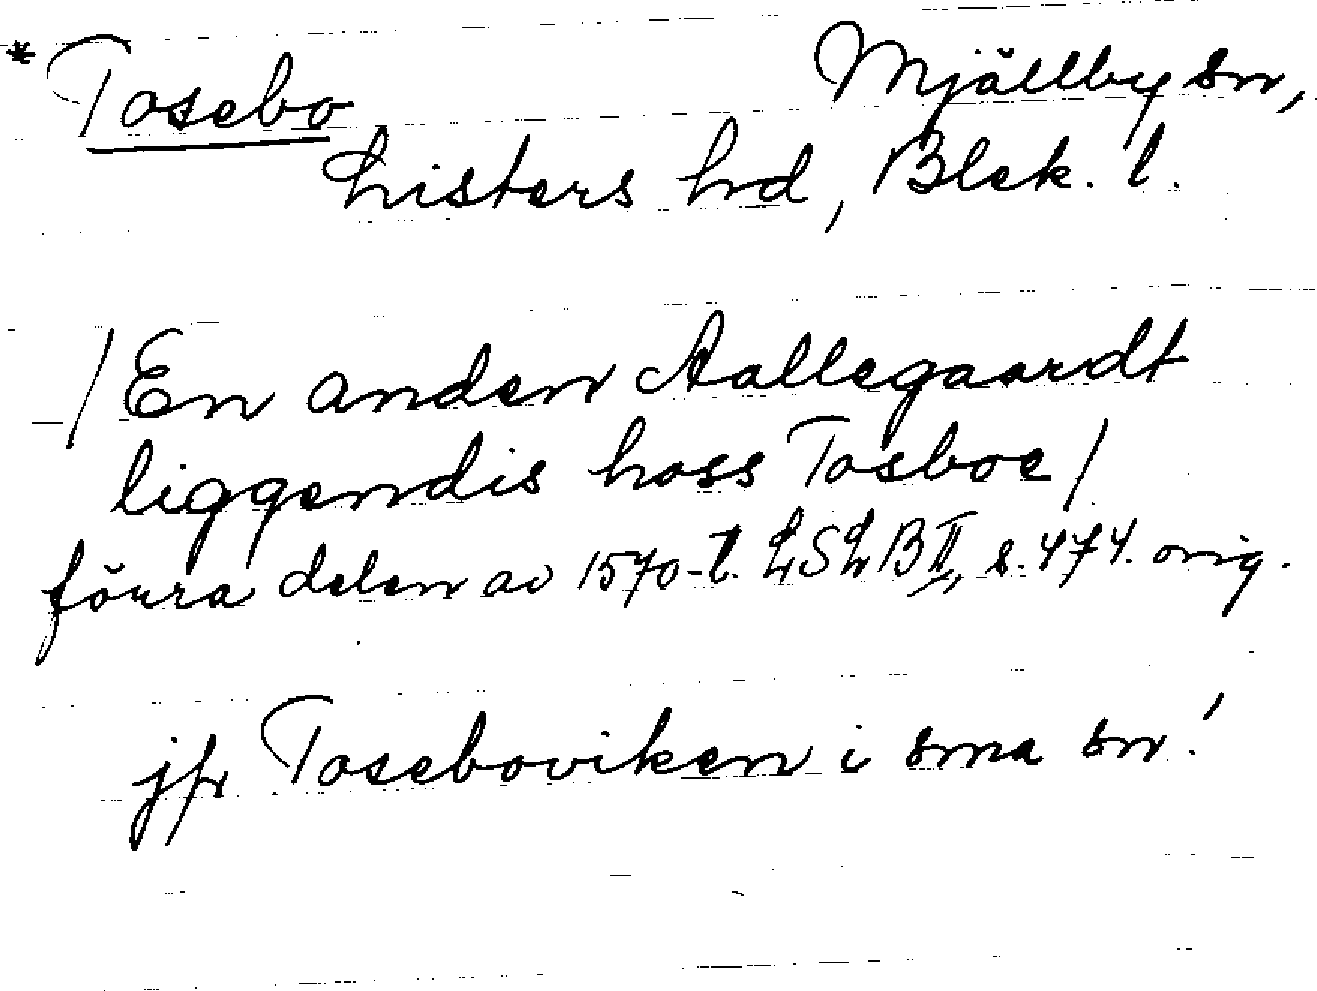 * Tosebo Mjällby sn,
Listers hrd, Blek. l.
/ En anden Aallegaardt
liggendis hoss Tosboe /
förra delen av 1570-t. LSLB II, s. 474. orig.
jfr Toseboviken i sma sn!